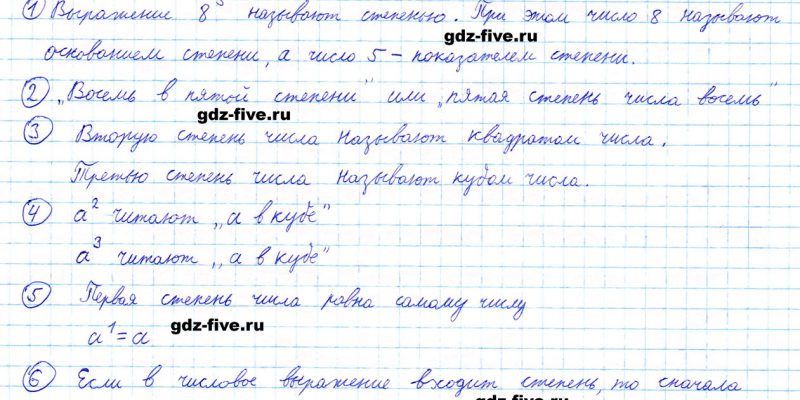 ① Выражение 8⁵ называют степенью. При этом число 8 называют
gdz-five.ru
основанием степени, а число 5 – показателем степени.
② „Восемь в пятой степени" или „пятая степень числа восемь"
gdz-five.ru
③ Вторую степень числа называют квадратом числа.
Третью степень числа называют кубом числа.
④ a² читают „а в кубе"
a³ читают „а в кубе"
⑤ Первая степень числа равна самому числу
gdz-five.ru
a¹=a
⑥ Если в числовое выражение входит степень, то сначала
gdz-five.ru